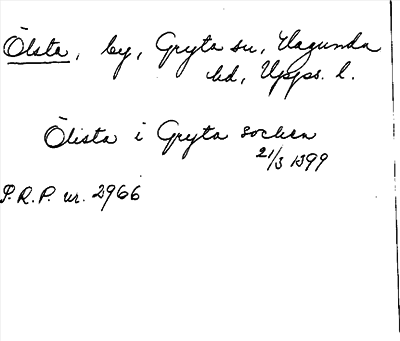 Ölsta, by, Gryta sn, Hagunda
hd, Upps. l.
Ölista i Gryta sochen
21/3 1399
P.R.P. nr. 2966